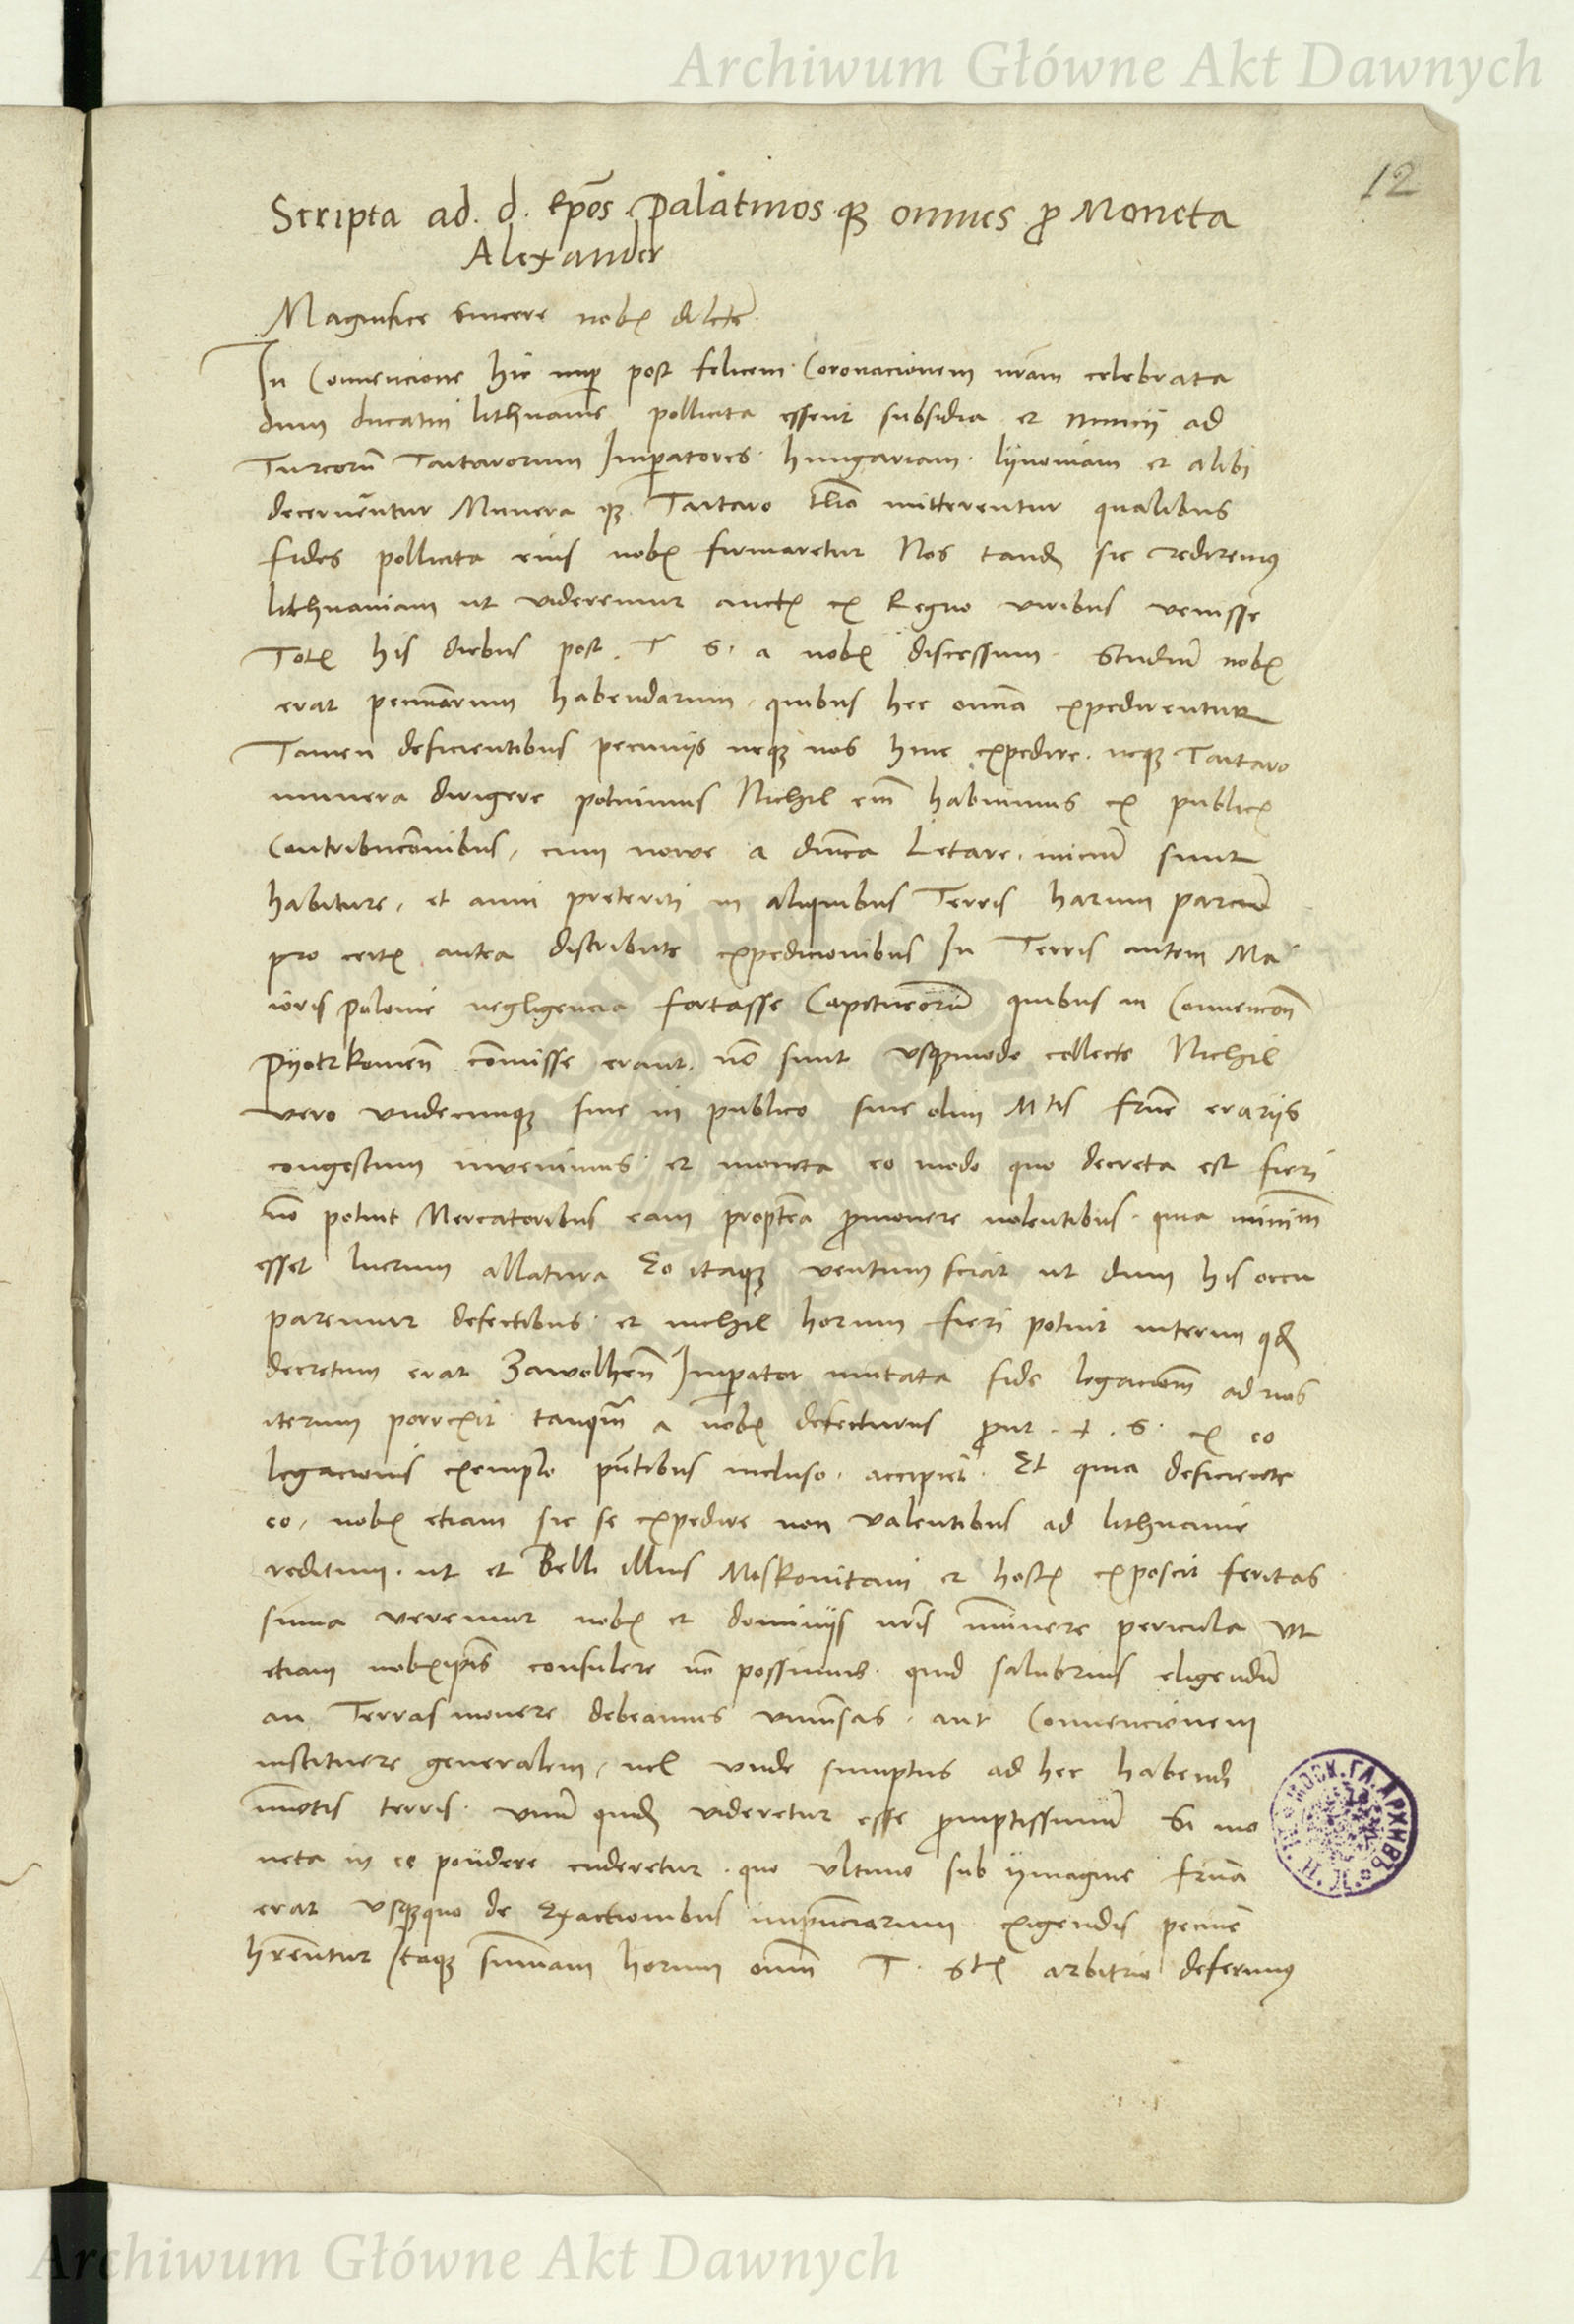 Archiwum Główne Akt Dawnych
12
Scripta ad. d. Ep̄os. Palatinos. qȝ omnes ꝓ Moneta
Alexander
Magnifice sincere nobꝭ dilcte.
In Convencione hic nuꝑ post felicem Coronacionem nr̄am celebrata
dum ducatui lithuanie pollicita essent subsidia et nuncij ad
Turcorū Tartarorum Imꝑatores. hungariam. lijvoniam et alibi
decernēntur Munera qȝ Tartaro mitterentur qualibus
fides pollicita eius nobꝭ firmaretur Nos tandē sic rediremꝰ
lithuaniam ut videremur auctꝭ ex Regno viribus venisse
Totꝭ his diebus post T. S. a nobꝭ discessum. Studiū nobꝭ
erat pecuniarum habendarum. quibus hec omnia expedirentur
Tamen deficientibus pecunijs neqȝ nos hinc expedire. neqȝ Tartaro
munera dirigere potuimus Nichil em̄ habuimus ex publicꝭ
Contribucōnibus, cum nove a dn̄ica Letare. iniciū sunt
habiture, et anni preteriti in aliquibus Terris harum parciū
pro certꝭ antea distribute expedicionibus In Terris autem Ma
ioris polonie negligencia fortasse Capitneorū quibus in Convencōn
Pyotrkovien̄ cōmisse erant. nō sunt usqȝmodo collecte Nichil
vero undecunqȝ sive in publico sive olim Mtis frn̄e erarijs
congestum invenimus et moneta eo modo quo decreta est fieri
nō potuit Mercatoribus eam propt̄ea ꝓmovere nolentibus. quia minim̄
esset lucrum allatura Eo itaqȝ ventum sciat ut dum his occu
paremur defectibus et nichil horum fieri potuit interim qđ
decretum erat Zawolhen̄ Imꝑator mutata fide legaciōm ad nos
iterum porrexit tanqm̄ a nobꝭ defecturus ꝓut. T. S. ex eo
legacionis exemplo pn̄tibus incluso. accipiet. Et quia deficiente
eo, nobꝭ etiam sic se expedire non valentibus ad lithuanie
reditum. ut et Belli illius Moskovitani et hostꝭ exposcit feritas
summa veremur nobꝭ et dominijs nr̄is iminere pericula Ut
etiam nobꝭip̄is consulere nō possimus. quid salubrius eligendū
an Terras movere debeamus univsas. aut Convencionem
instituere generalem, vel unde sumptus ad hec habendi
īmotis terris. unū quidē videretur esse ꝓmptissimū Si mo
neta in eo pondere cuderetur. quo ultimo sub ymagine frn̄a
erat usqȝquo de Exactionibus exigendis pecunie
hr̄entur Itaqȝ sum̄am horum om̄m T. Stꝭ arbitrio deferimꝰ
Archiwum Główne Akt Dawnych